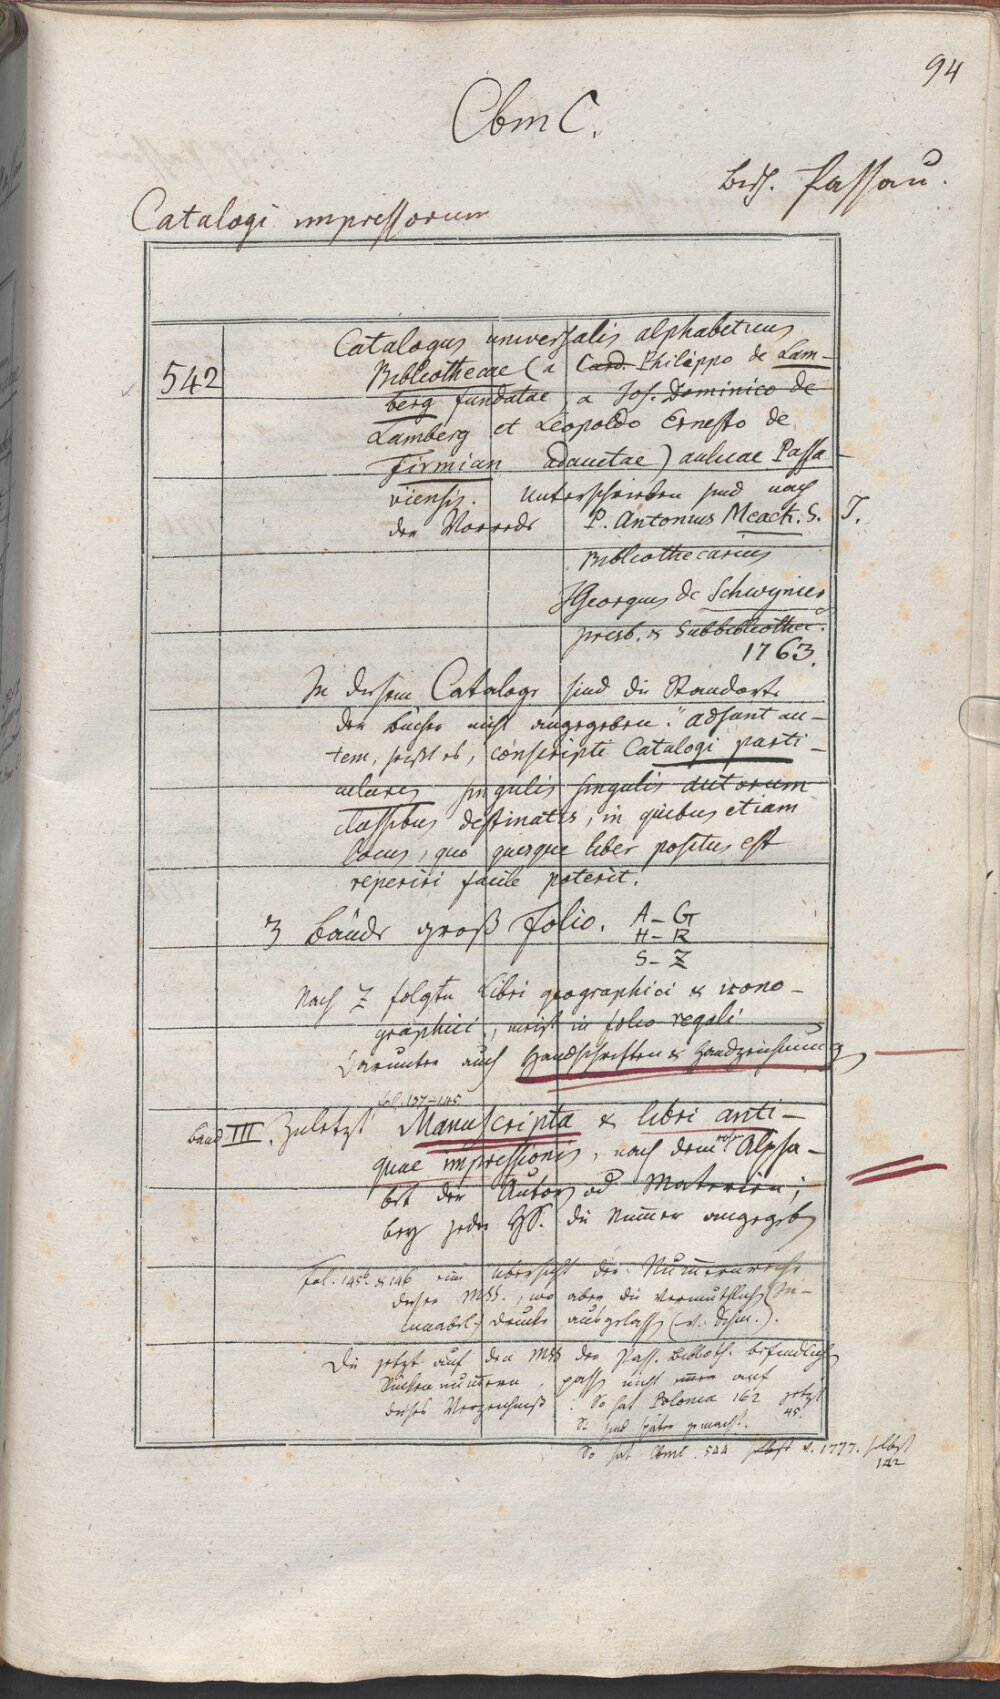 94
Cbm C.
Bisch. Passau.
Catalogi impressorum
542
Catalogus universalis alphabeticus
Bibliothecae (a Card. Philippo de Lam-
berg fundatae, a Jos. Dominico de
Lamberg et Leopoldo Ernesto de
Firmian adauctae) aulicae Passa-
viensis. Unterschrieben sind nach
der Vorrede P. Antonius Meack. S. J.
Bibliothecarius
Georgius de Schwynier
presb. & Subbibliothec.
1763.
In diesem Cataloge sind die Standorte
der Bücher nicht angegeben. "Adsunt au-
tem, heißt es, conscripti Catalogi parti-
culares singulis singulis autorum
classibus destinatis, in quibus etiam
locus, quo quisque liber positus est
reperiri facile poterit.
3 Bände groß Folio. A-G
H-R
S-Z
Nach Z folgen Libri geographici & icono-
graphici, meist in folio regali
Darunter auch Handschriften & Handzeichnung
fol. 137-145
Band III. Zuletzt Manuscripta & libri anti-
quae impressionis, nach dem Alpha-
bet der Autor od Materien;
bey jeder HS. die Numer angegeb
Fol. 145b & 146 eine Übersicht der Numernreihe
dieser MSS., wo aber die vermuthlich In-
cunabel-Drucke ausgelass (v. Schm.).
Die jetzt auf den MSS der Pass. Biblioth. befindlich
nummern, pass nicht mehr auf
dieses Verzeichniß. So hat Polonia 162 jetzt
45.
Sie sind später gemacht.
So hat Cbml. 544 selbst v. 1777. selbst
142